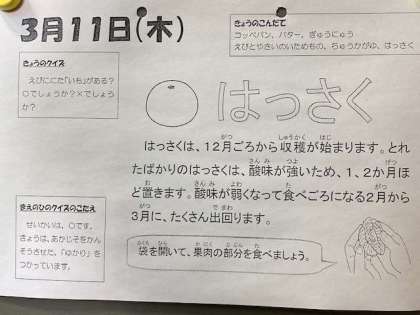 3月11日(木)
きょうのこんだて
コッペパン、バター、ぎゅうにゅう
えびとやさいのいためもの、ちゅうかがゆ、はっさく
きょうのクイズ
えびににた「いも」がある?
○でしょうか?×でしょう
か?
はっさく
はっさくは、12月ごろから収穫が始まります。とれ
たばかりのはっさくは、酸味が強いため、1、2か月ほ
ど置きます。酸味が弱くなって食べごろになる2月から
3月に、たくさん出回ります。
きえのひのクイズのこたえ
せいかいは、○です。
きょうは、あかじそをかん
そうさせた、「ゆかり」を
つかっています。
袋を開いて、果肉の部分を食べましょう。